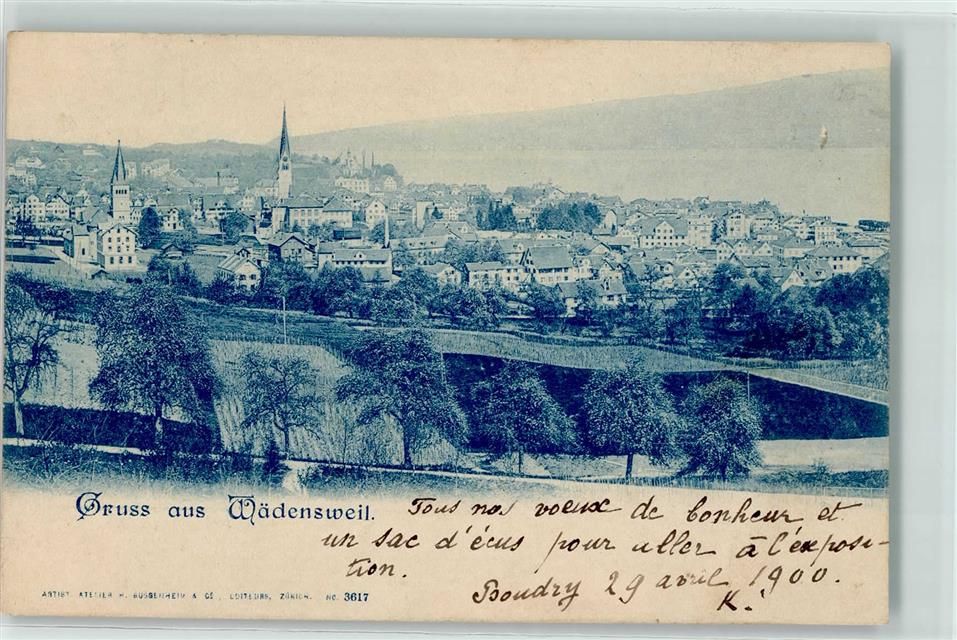 Gruss aus Wädensweil.
Tous nos voeux de bonheur et
un sac d'écus pour aller à l'exposi-
tion.
Boudry 29 avril 1900.
K.
ARTIST. ATELIER H. GUGGENHEIM & Co., EDITEURS, ZÜRICH. No. 3617